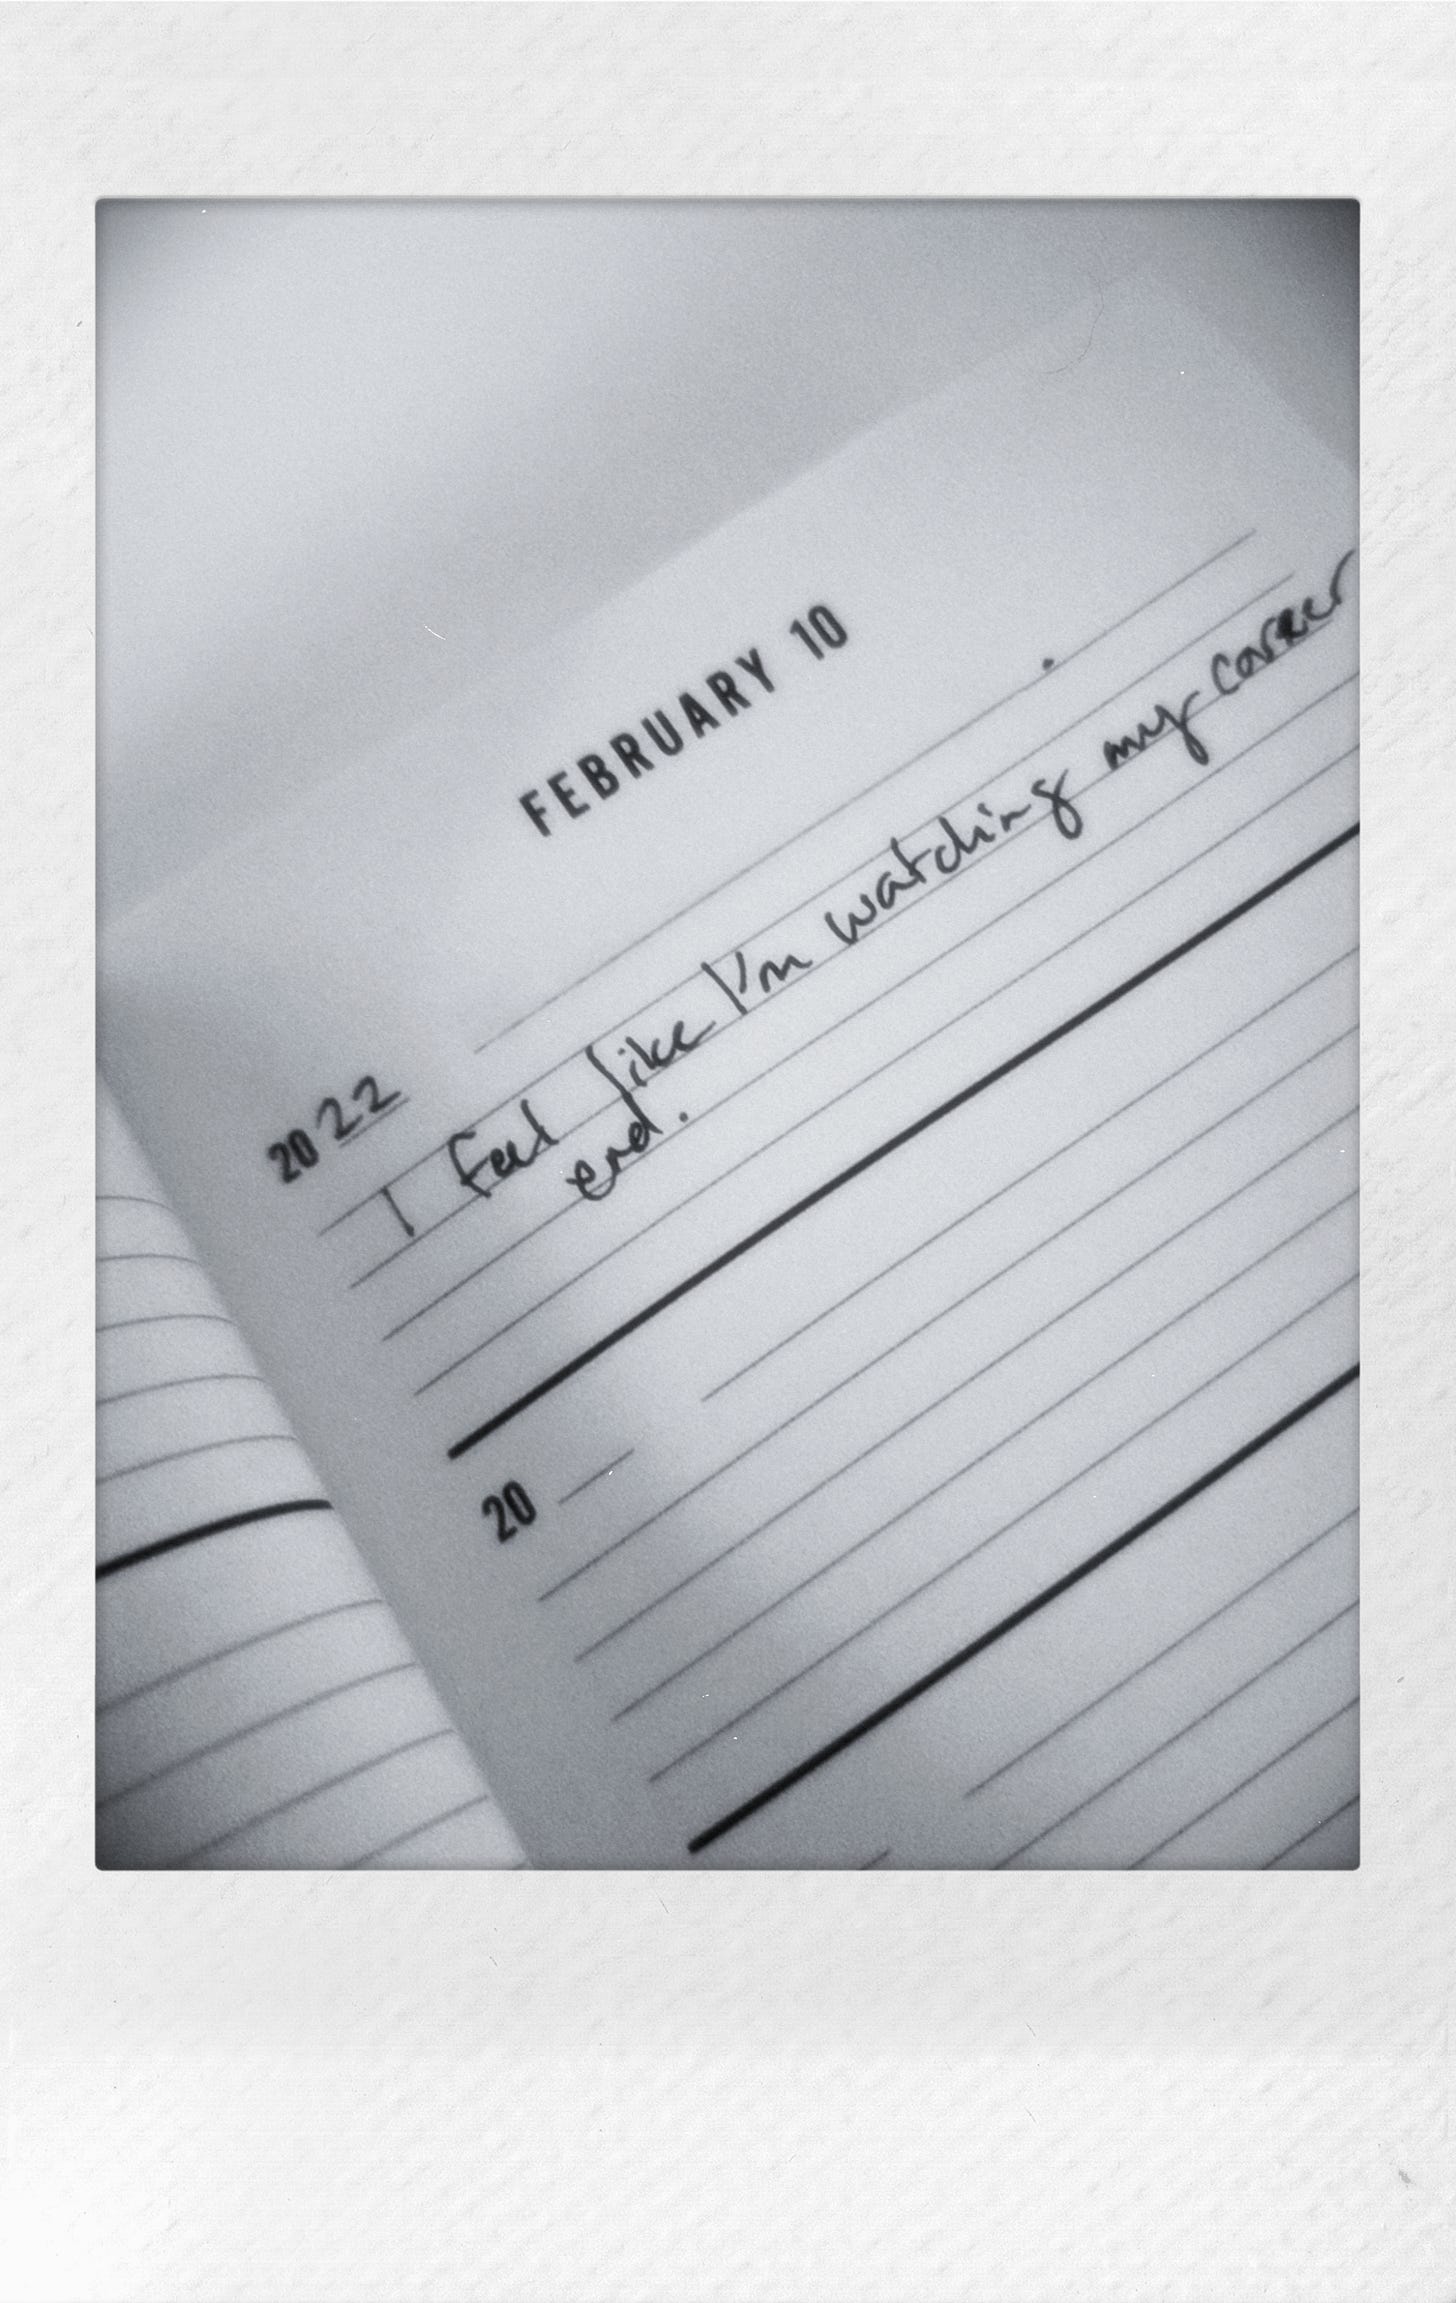 FEBRUARY 10
2022
I feel like I'm watching my career
end.
20